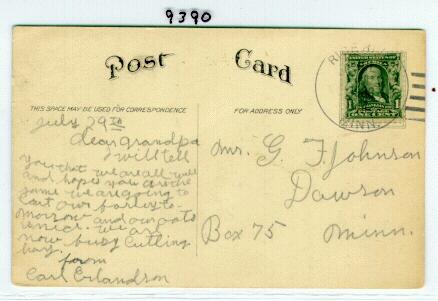 9390
Post Card
THIS SPACE MAY BE USED FOR CORRESPONDENCE
FOR ADDRESS ONLY
RICE
MINN.
UNITED STATES OF AMERICA
1 1
ONE CENT
July 29th
Dear Grandpa
I will tell
you that we are all well
and hope you are the
same we are going to
cut our barley to-
morrow and our oats
we are
now busy cutting
hay.
from
Carl Erlandson
Mr. G. F. Johnson
Dawson
Box 75 Minn.